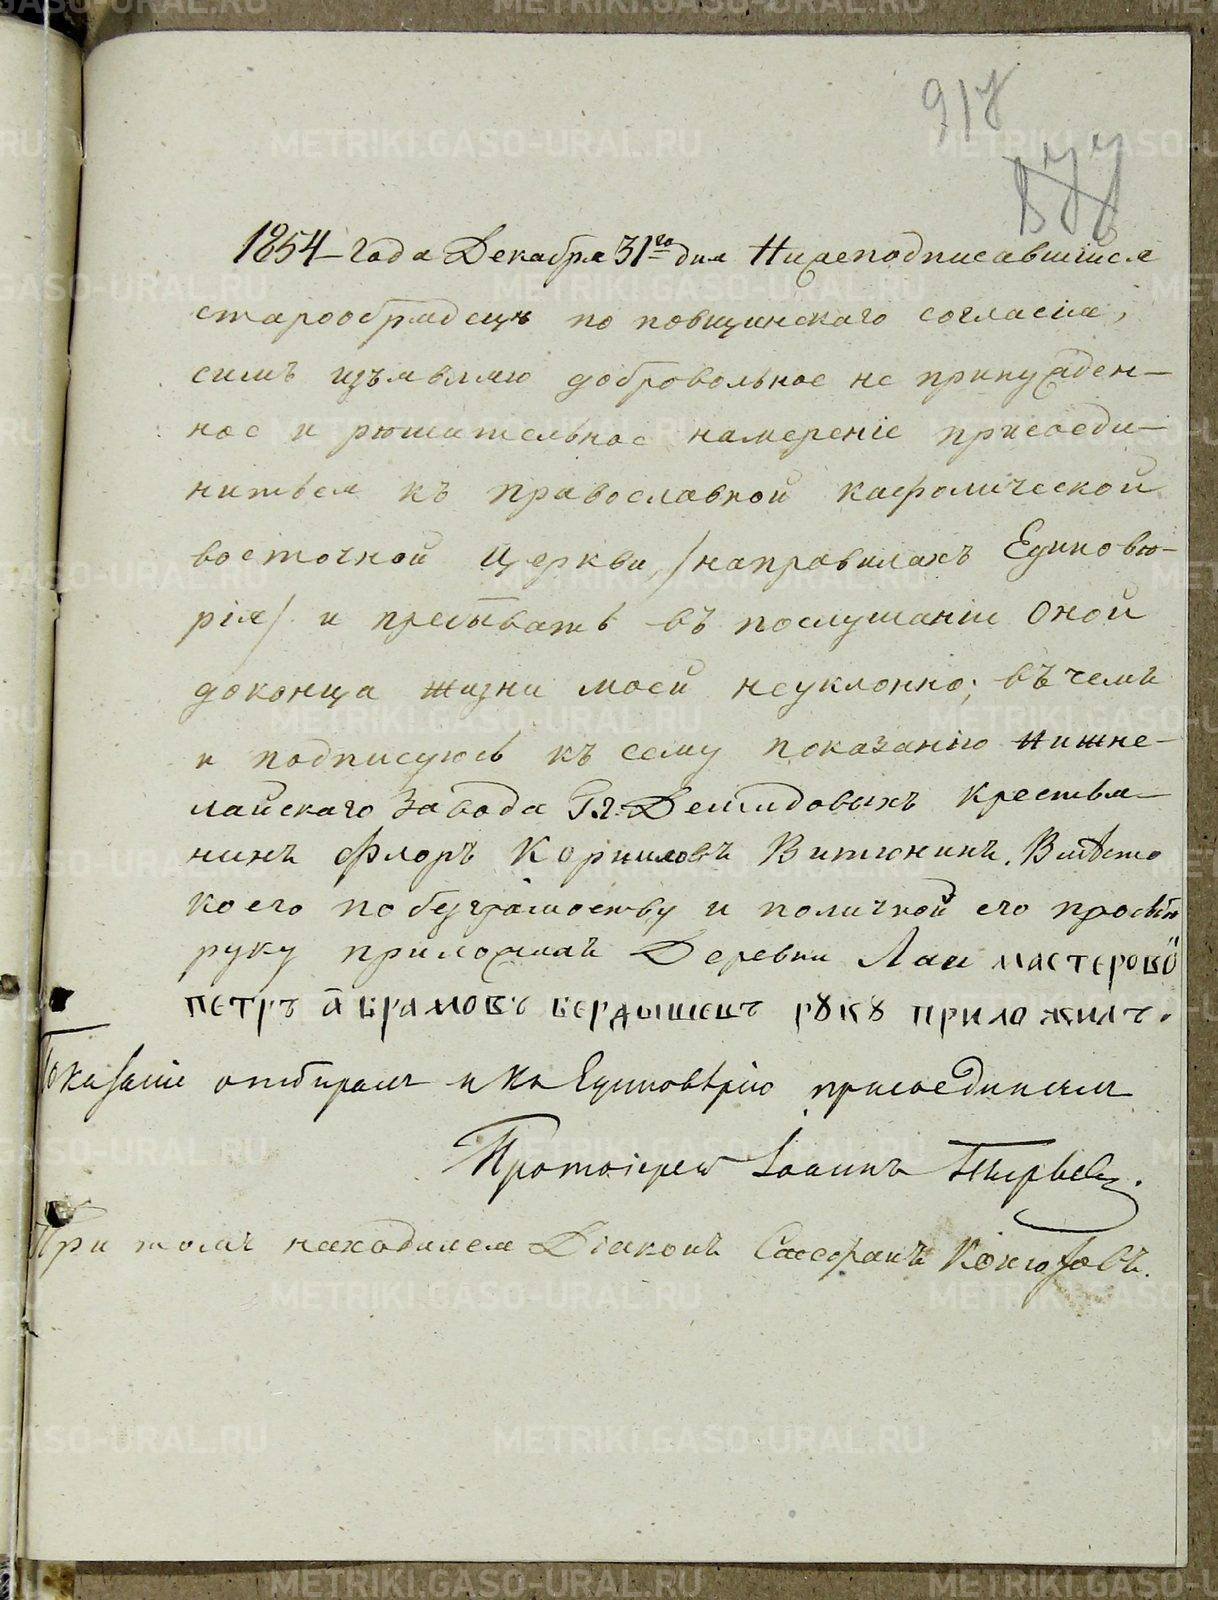 917
877
1854 года Декабря 31го дня Нижеподписавшийся
старообрядецъ по повщинскаго согласія,
симъ изъявляю добровольное не принужден-
ное и рѣшительное намереніе присоеди-
ниться къ православной кафолической
восточной Церкви, /направилахъ Единовѣ-
рія/ и пребывать въ послушаніи оной
доконца жизни моей неуклонно; въ чемъ
и подписуюсь къ сему показанію Нижне-
лайскаго завода Гг. Демидовыхъ крестья-
нинъ Флоръ Корниловъ Витюнинъ. Вмѣсто
коего по безграмотству и поличной его прозьбѣ
руку приложилъ Деревни Лаи мастерово
петръ абрамовъ бердышевъ рꙋкꙋ приложилъ.
Показаніе отбиралъ и къ Единовѣрію присоединилъ
Протоіерей Іоаннъ Пырьевъ.
При томъ находился Діаконъ Сасоранъ Конюховъ.
METRIKI.GASO-URAL.RU